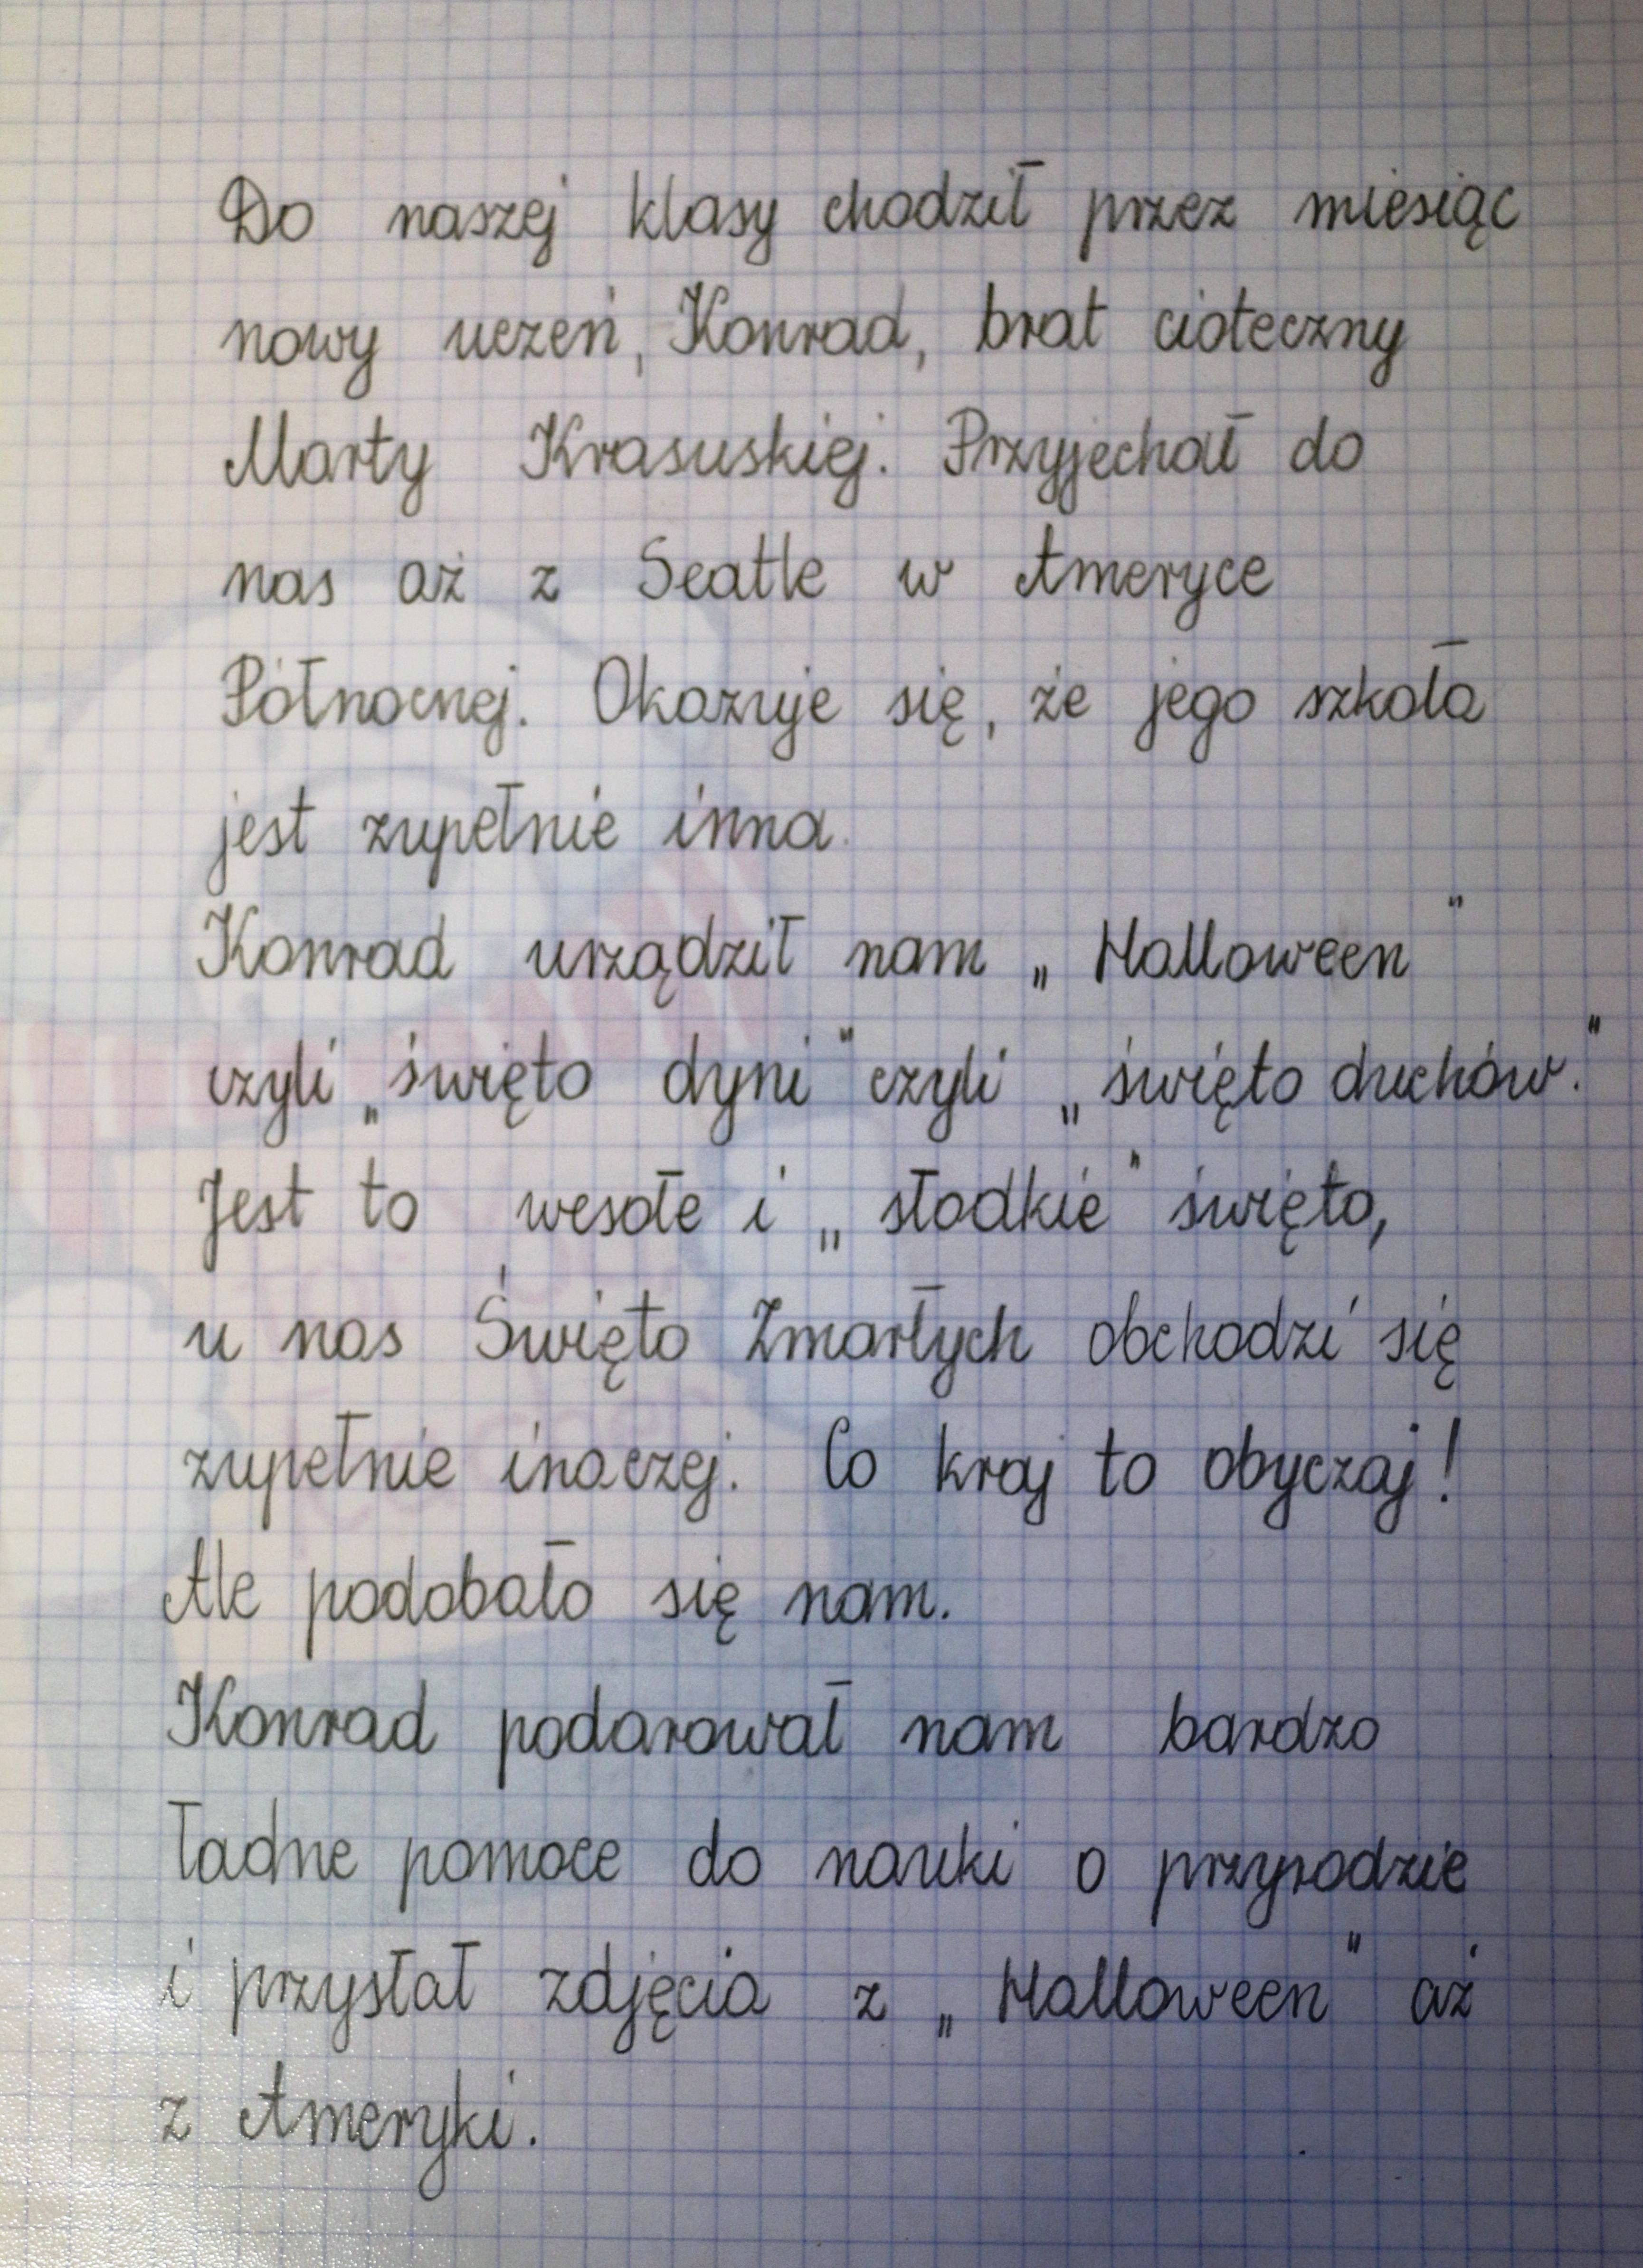 Do naszej klasy chodził przez miesiąc
nowy uczeń, Konrad, brat cioteczny
Marty Krasuskiej. Przyjechał do
nas aż z Seatle w Ameryce
Północnej. Okazuje się, że jego szkoła
jest zupełnie inna.
Konrad urządził nam „Halloween"
czyli „święto dyni" czyli „święto duchów."
Jest to wesołe i „słodkie" święto,
u nas Święto Zmarłych obchodzi się
zupełnie inaczej. Co kraj to obyczaj!
Ale podobało się nam.
Konrad podarował nam bardzo
ładne pomoce do nauki o przyrodzie
i przysłał zdjęcia z „Halloween" aż
z Ameryki.